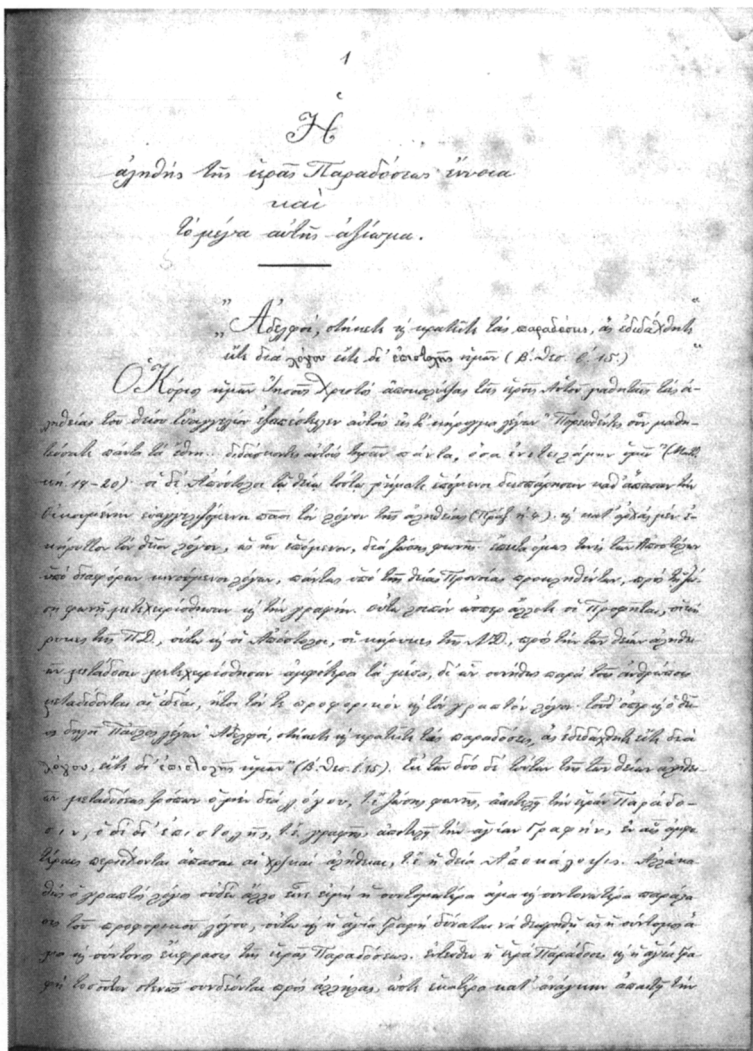 1
Ἡ
ἀληθὴς τῆς ἱερᾶς Παραδόσεως ἔννοια
καὶ
τὸ μέγα αὐτῆς ἀξίωμα.
"Ἀδελφοί, στήκετε κ κρατεῖτε τὰς παραδόσεις, ἃς ἐδιδάχθητε
εἴτε διὰ λόγου εἴτε δι' ἐπιστολῆς ἡμῶν (Β. Θεσ. β' 15.)"
Ὁ Κύριος ἡμῶν Ἰησοῦς Χριστὸς ἀποκαλύψας τοῖς ἱεροῖς Αὐτοῦ μαθηταῖς τὰς ἀ-
ληθείας τοῦ θείου Εὐαγγελίου ἐξαπέστειλεν αὐτοὺς εἰς τὸ κήρυγμα λέγων "Πορευθέντες οὖν μαθη-
τεύσατε πάντα τὰ ἔθνη... διδάσκοντες αὐτοὺς τηρεῖν πάντα, ὅσα ἐνετειλάμην ὑμῖν" (Ματθ.
κή. 19-20) οἱ δὲ Ἀπόστολοι τῷ θείῳ τούτῳ ῥήματι ἑπόμενοι διεσπάρησαν καθ' ἅπασαν τὴν
οἰκουμένην εὐαγγελιζόμενοι πᾶσι τὸν λόγον τῆς ἀληθείας (Πράξ. η' 4.) κ κατ' ἀρχὰς μὲν ἐ-
κήρυττον τὸν θεῖον λόγον, ὡς ἦν ἑπόμενον, διὰ ζώσης φωνῆς· ἔπειτα ὅμως τινὲς τῶν Ἀποστόλων
ὑπὸ διαφόρων κινούμενοι λόγων, πάντως ὑπὸ τῆς θείας Προνοίας προκληθέντων, πρὸς τῇ ζώ-
σῃ φωνῇ μετεχειρίσθησαν κ τὴν γραφήν. οὕτω λοιπὸν ὥσπερ ἄλλοτε οἱ Προφῆται, οἱ κή-
ρυκες τῆς Π.Δ., οὕτω κ οἱ Ἀπόστολοι, οἱ κήρυκες τῆς Ν.Δ., πρὸς τὴν τῶν θείων ἀληθει-
ῶν μετάδοσιν μετεχειρίσθησαν ἀμφότερα τὰ μέσα, δι' ὧν συνήθως παρὰ τοῖς ἀνθρώποις
μεταδίδονται αἱ ἰδέαι, ἤτοι τόν τε προφορικὸν κ τὸν γραπτὸν λόγον. τοῦθ' ὅπερ κ ὁ θεῖ-
ος δηλοῖ Παῦλος λέγων "Ἀδελφοί, στήκετε κ κρατεῖτε τὰς παραδόσεις, ἃς ἐδιδάχθητε εἴτε διὰ
λόγου, εἴτε δι' ἐπιστολῆς ἡμῶν" (Β. Θεσ. β'. 15). Ἐκ τῶν δύο δὲ τούτων τῆς τῶν θείων ἀληθει-
ῶν μεταδόσεως τρόπων ὁ μὲν διὰ λόγου, τ.ἔ. ζώσης φωνῆς, ἀποτελεῖ τὴν ἱερὰν Παράδο-
σιν, ὁ δὲ δι' ἐπιστολῆς, τ.ἔ. γραφῆς, ἀποτελεῖ τὴν ἁγίαν Γραφήν, ἐν αἷς ἀμφο-
τέραις περιέχονται ἅπασαι αἱ χρ/καὶ ἀλήθειαι, τ.ἔ. ἡ θεία Ἀποκάλυψις. Ἀλλὰ κα-
θὼς ὁ γραπτὸς λόγος οὐδὲν ἄλλο εἶνε εἰμὴ ἡ συντομωτέρα ἅμα κ συντονωτέρα παράλα-
σις τοῦ προφορικοῦ λόγου, οὕτω κ ἡ ἁγία Γραφὴ δύναται νὰ θεωρηθῇ ὡς ἡ σύντομος ἅ-
μα κ σύντονος ἔκφρασις τῆς ἱερᾶς Παραδόσεως. ἐντεῦθεν ἡ ἱερὰ Παράδοσις κ ἡ ἁγία Γρα-
φὴ τοσοῦτον στενῶς συνδέονται πρὸς ἀλλήλας, ὥστε ἑκατέρα κατ' ἀνάγκην ἀπαιτεῖ τὴν